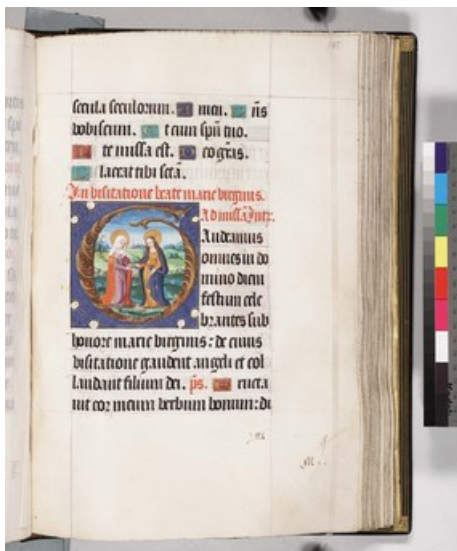 secula seculorum. A men. D ñs
vobiscum. E t cum spũ tuo.
I te missa est. D eo grãs.
P laceat tibi scã.
In visitatione beate marie virginis.
Ad missã Intr.
Gaudeamus
omnes in do
mino diem
festum cele
brantes sub
honore marie virginis: de cuius
visitatione gaudent angeli et col
laudant filium dei. p̃s. E ructa
uit cor meum verbum bonum: di